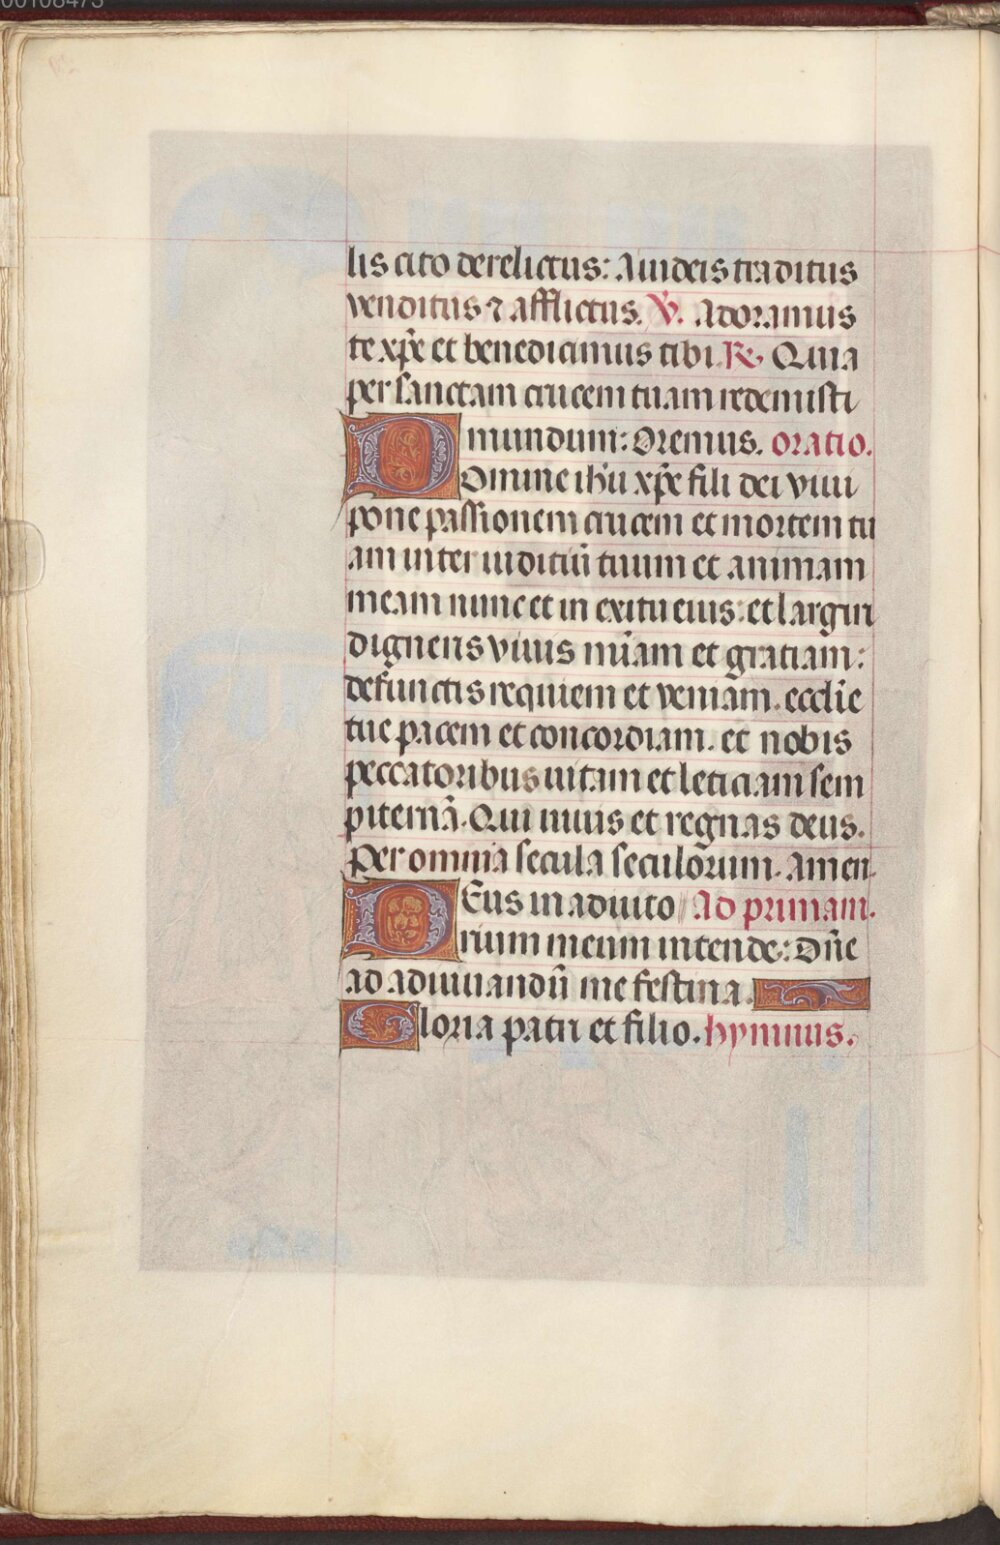 00108473
lis cito derelictus: A iudeis traditus
venditus ⁊ afflictus. ℣. Adoramus
te xp̄e et benedicimus tibi. ℟. Quia
per sanctam crucem tuam redemisti
mundum: Oremus. oratio.
Domine ih̄u xp̄e fili dei viui
pone passionem crucem et mortem tu
am inter iuditiū tuum et animam
meam nunc et in exitu eius: et largiri
digneris viuis mīam et gratiam:
defunctis requiem et veniam. eccl̄ie
tue pacem et concordiam. et nobis
peccatoribus uitam et leticiam sem
piternā. Qui uiuis et regnas deus.
Per omnia secula seculorum. Amen.
DEus in adiuto Ad primam.
rium meum intende: Dn̄e
ad adiuuandū me festina.
Gloria patri et filio. hymnus.